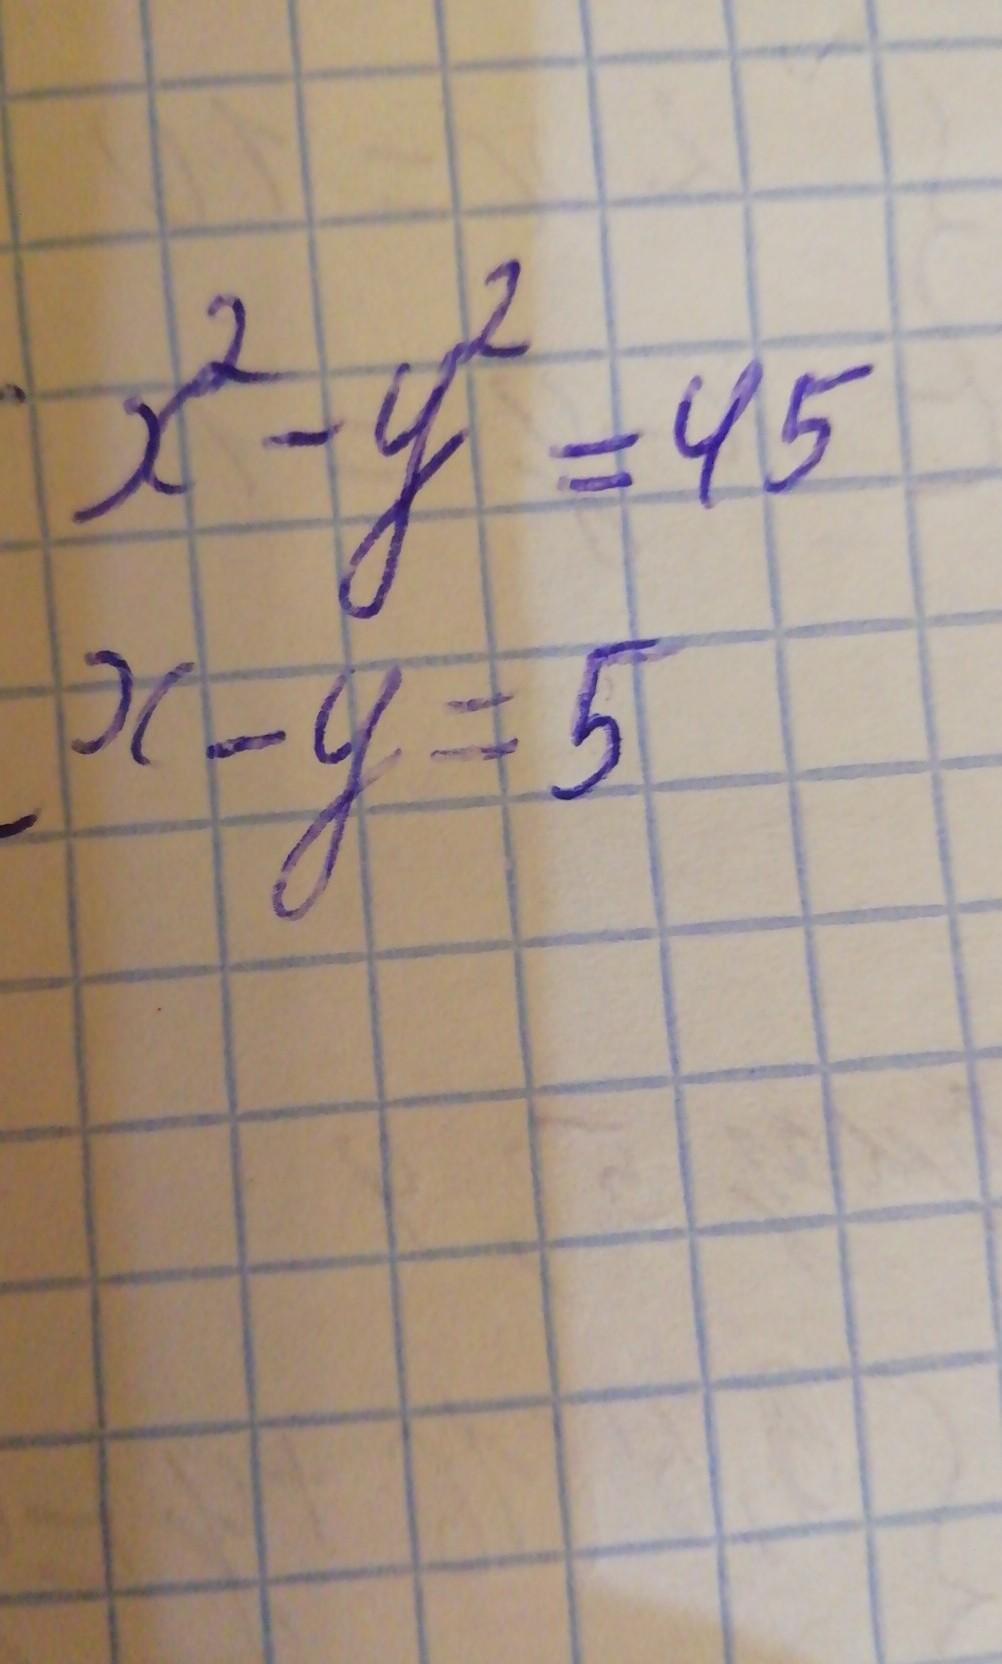 x² - y² = 45
x - y = 5